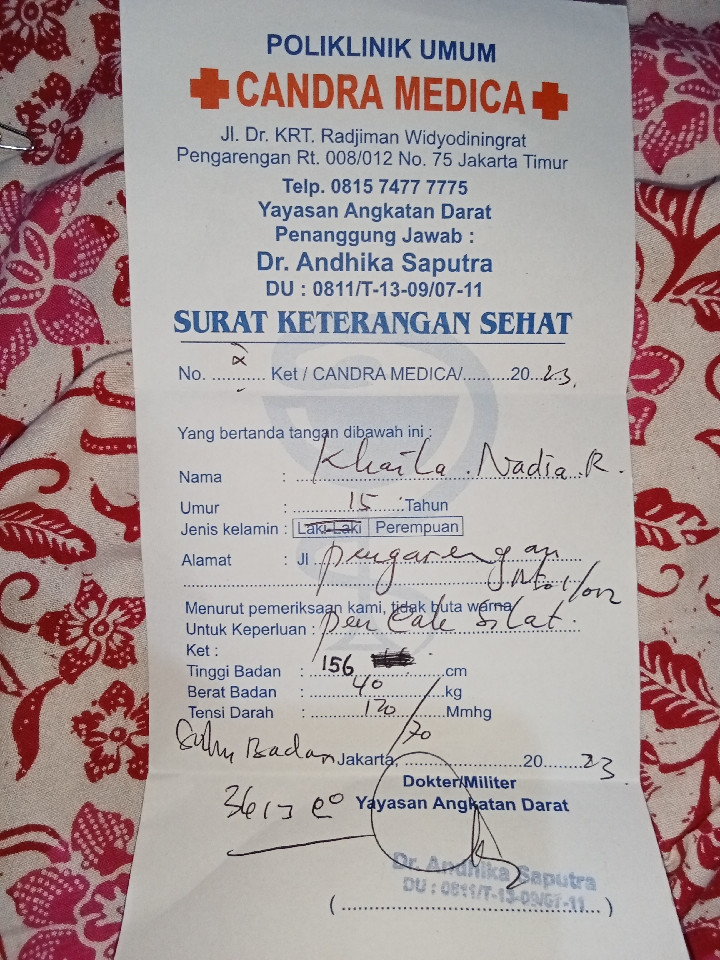 POLIKLINIK UMUM
CANDRA MEDICA
Jl. Dr. KRT. Radjiman Widyodiningrat
Pengarengan Rt. 008/012 No. 75 Jakarta Timur
Telp. 0815 7477 7775
Yayasan Angkatan Darat
Penanggung Jawab :
Dr. Andhika Saputra
DU : 0811/T-13-09/07-11
SURAT KETERANGAN SEHAT
No. ............ Ket / CANDRA MEDICA/..........20..23.
Yang bertanda tangan dibawah ini :
Nama : Khaila Nadia R.
Umur : 15 Tahun
Jenis kelamin : Laki-Laki Perempuan
Alamat : Jl pengarengan
Menurut pemeriksaan kami, tidak buta warna
Untuk Keperluan : pencak silat.
Ket :
Tinggi Badan : 156 cm
Berat Badan : 40 kg
Tensi Darah : 120/70 Mmhg
Suhu Badan
Jakarta, ........................20........23
Dokter/Militer
Yayasan Angkatan Darat
Dr. Andhika Saputra
DU : 0811/T-13-09/07-11
(............................................)